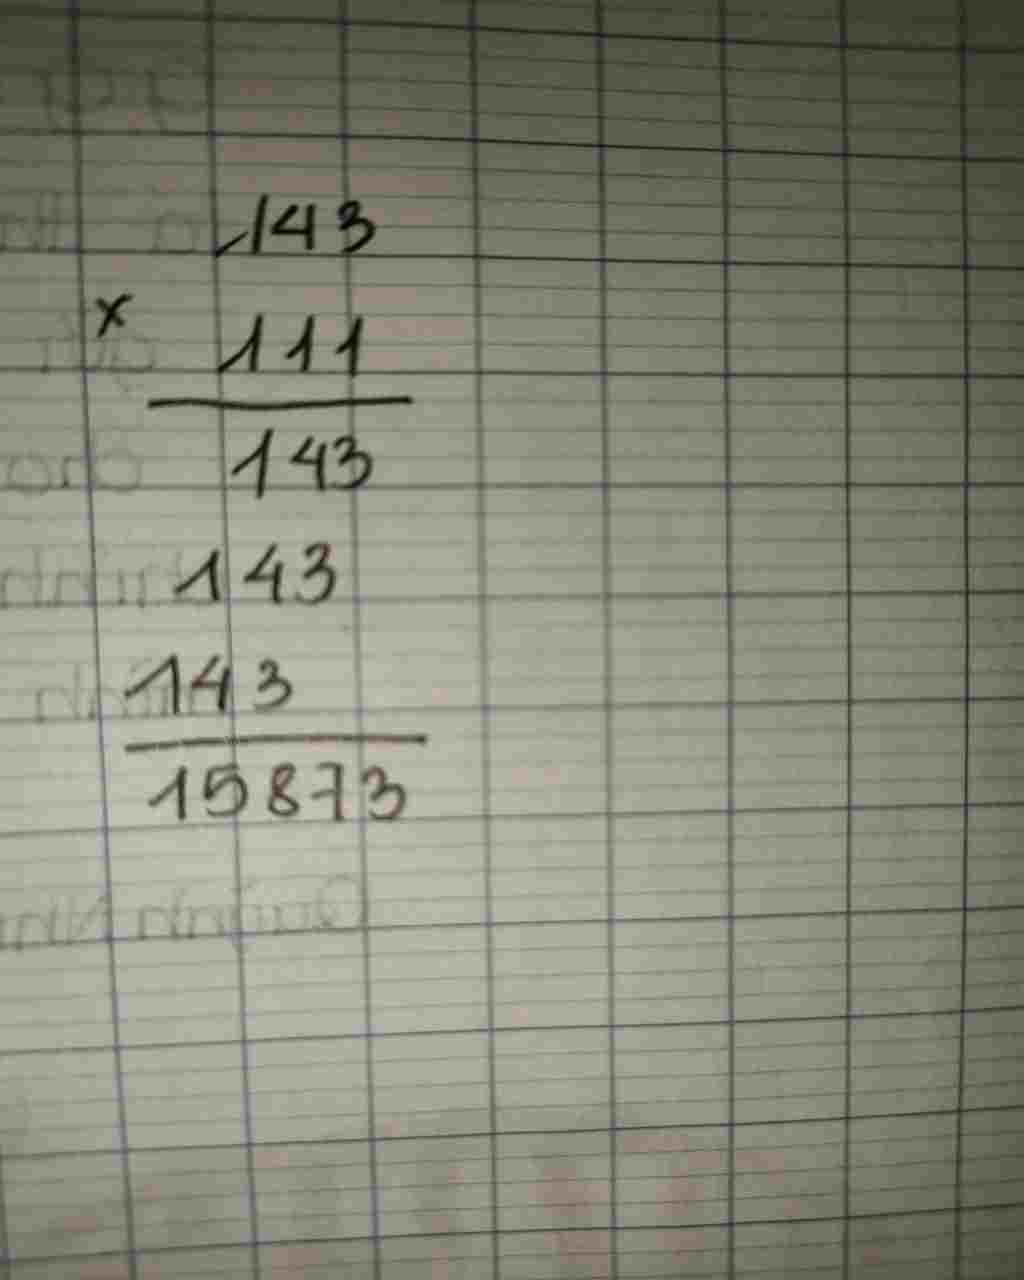 143
x
111
143
143
143
15873